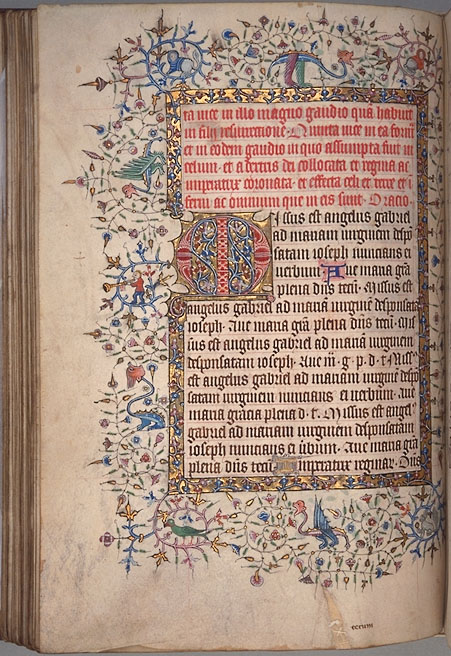 ta vice in illo magno gaudio quā habuit
in filij resurrectione. Quinta vice in ea forma
et in eodem gaudio in quo assumpta fuit in
celum. et a dextris dei collocata et regina ac
imperatrix coronata. et effecta celi et terre et i
ferni ac omnium que in eis sunt. Oracio.
Missus est angelus gabriel
ad mariam virginem despō
satam ioseph nuncians ei
verbum. Aue maria grā
plena dn̄s tecū. Missus est
angelus gabriel ad mariā virginē desponsatā
ioseph. Aue maria grā plena dn̄s tecū. Mis
sus est angelus gabriel ad mariā virginem
desponsatam ioseph. Aue m̄. g. p. d. t. Missus
est angelus gabriel ad mariam virginē despō
satam virginem nuncians ei verbum. Aue
maria gracia plena d. t. Missus est angel
gabriel ad mariam virginem desponsatam
ioseph nuncians ei v̄bum. Aue maria grā
plena dn̄s tecū. imperatrix reginar.
tecum